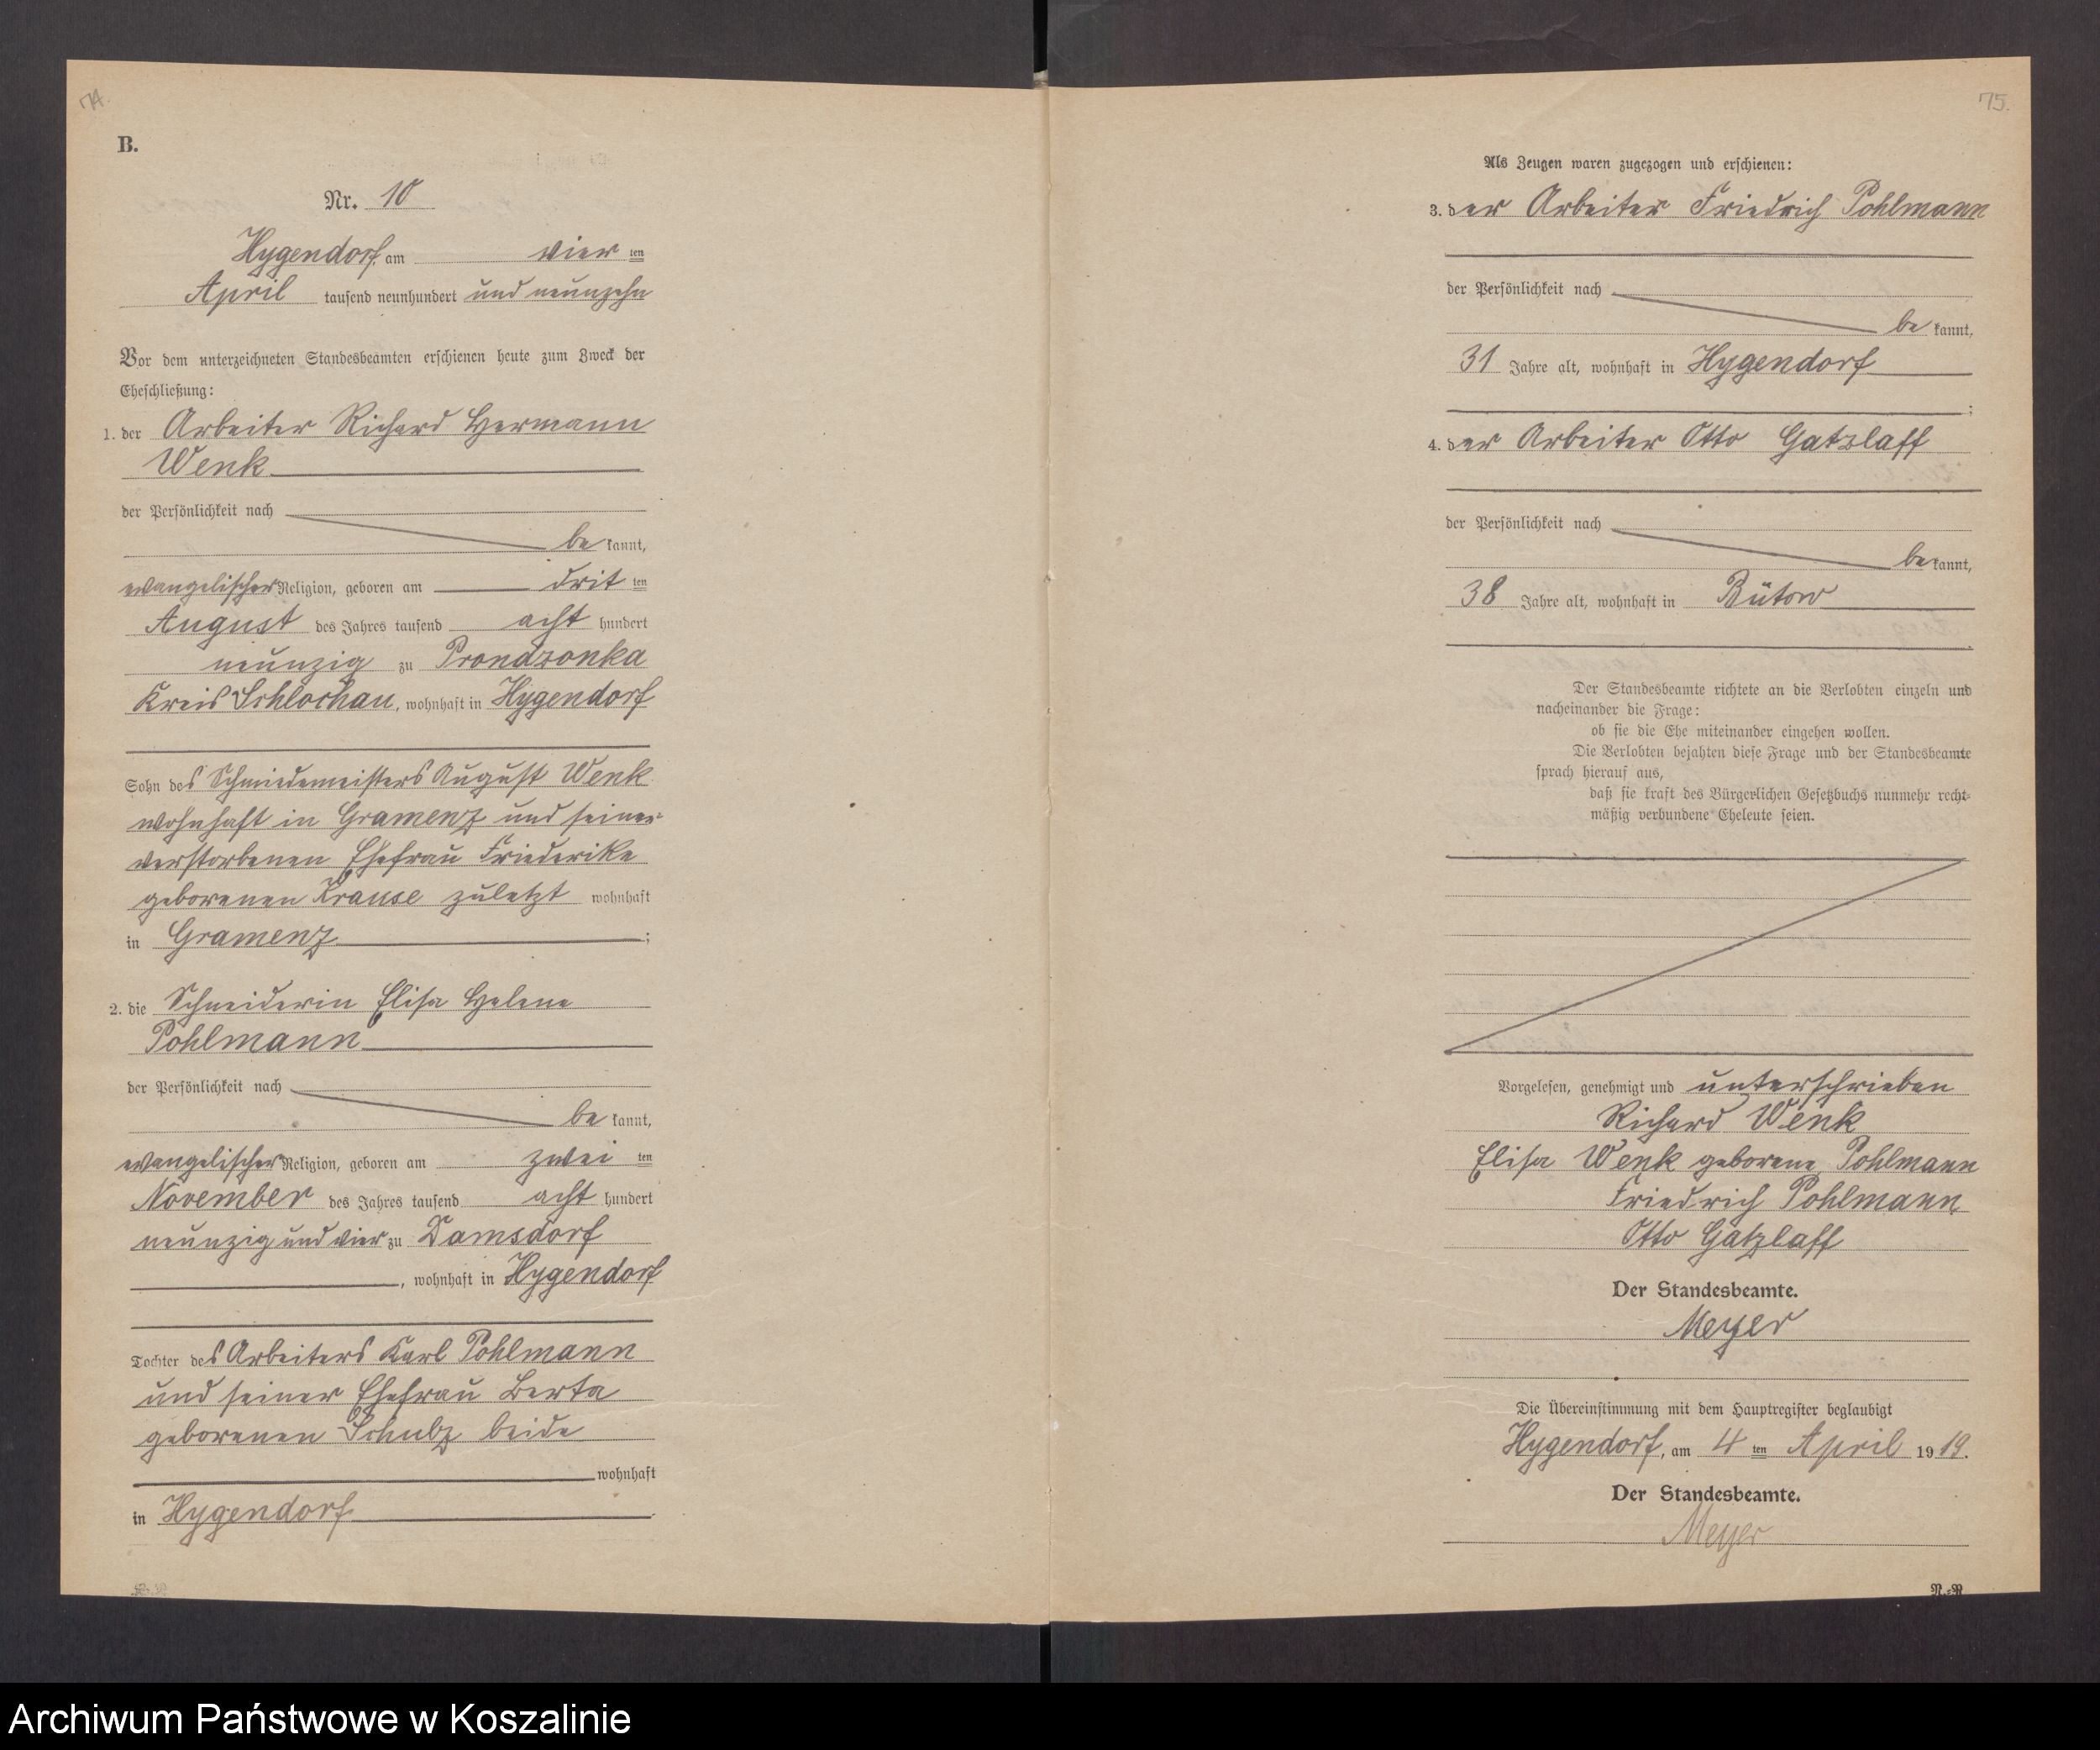 74.
B.
Nr. 10
Hygendorf, am vier ten
April tausend neunhundert und neunzehn
Vor dem unterzeichneten Standesbeamten erschienen heute zum Zweck der
Eheschließung:
1. der Arbeiter Richard Hermann
Wenk
der Persönlichkeit nach
be kannt,
evangelischer Religion, geboren am drit ten
August des Jahres tausend acht hundert
neunzig zu Prondzonka
Kreis Schlochau, wohnhaft in Hygendorf
Sohn des Schmiedemeisters August Wenk
wohnhaft in Gramenz und seiner
verstorbenen Ehefrau Friederike
geborenen Krause zuletzt wohnhaft
in Gramenz ;
2. die Schneiderin Elisa Helene
Pohlmann
der Persönlichkeit nach
be kannt,
evangelischer Religion, geboren am zwei ten
November des Jahres tausend acht hundert
neunzig und vier zu Damsdorf
, wohnhaft in Hygendorf
Tochter des Arbeiters Karl Pohlmann
und seiner Ehefrau Berta
geborenen Schulz beide
wohnhaft
in Hygendorf.
75.
Als Zeugen waren zugezogen und erschienen:
3. der Arbeiter Friedrich Pohlmann
der Persönlichkeit nach
be kannt,
31 Jahre alt, wohnhaft in Hygendorf
;
4. der Arbeiter Otto Gatzlaff
der Persönlichkeit nach
be kannt,
38 Jahre alt, wohnhaft in Bütow
.
Der Standesbeamte richtete an die Verlobten einzeln und
nacheinander die Frage:
ob sie die Ehe miteinander eingehen wollen.
Die Verlobten bejahten diese Frage und der Standesbeamte
sprach hierauf aus,
daß sie kraft des Bürgerlichen Gesetzbuchs nunmehr recht-
mäßig verbundene Eheleute seien.
Vorgelesen, genehmigt und unterschrieben
Richard Wenk
Elisa Wenk geborene Pohlmann
Friedrich Pohlmann
Otto Gatzlaff
Der Standesbeamte.
Meyer
Die Übereinstimmung mit dem Hauptregister beglaubigt
Hygendorf, am 4 ten April 19 19.
Der Standesbeamte.
Meyer
N.-R
Archiwum Państwowe w Koszalinie